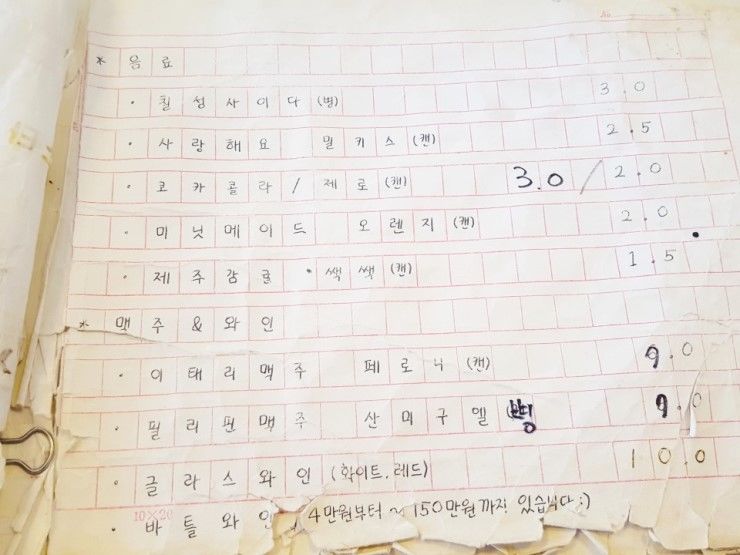 No.
* 음료
· 칠성사이다 (병) 3.0
· 사랑해요 밀키스 (캔) 2.5
· 코카콜라 / 제로 (캔) 3.0 / 2.0
· 미닛메이드 오렌지 (캔) 2.0
· 제주감귤 · 쌕쌕 (캔) 1.5
* 맥주 & 와인
· 이태리맥주 페로니 (캔) 9.0
· 필리핀맥주 산미구엘 (병) 9.0
· 글라스와인 (화이트, 레드) 10.0
· 바틀와인, 4만원부터 ~ 150만원까지 있습니다 :)
10×20